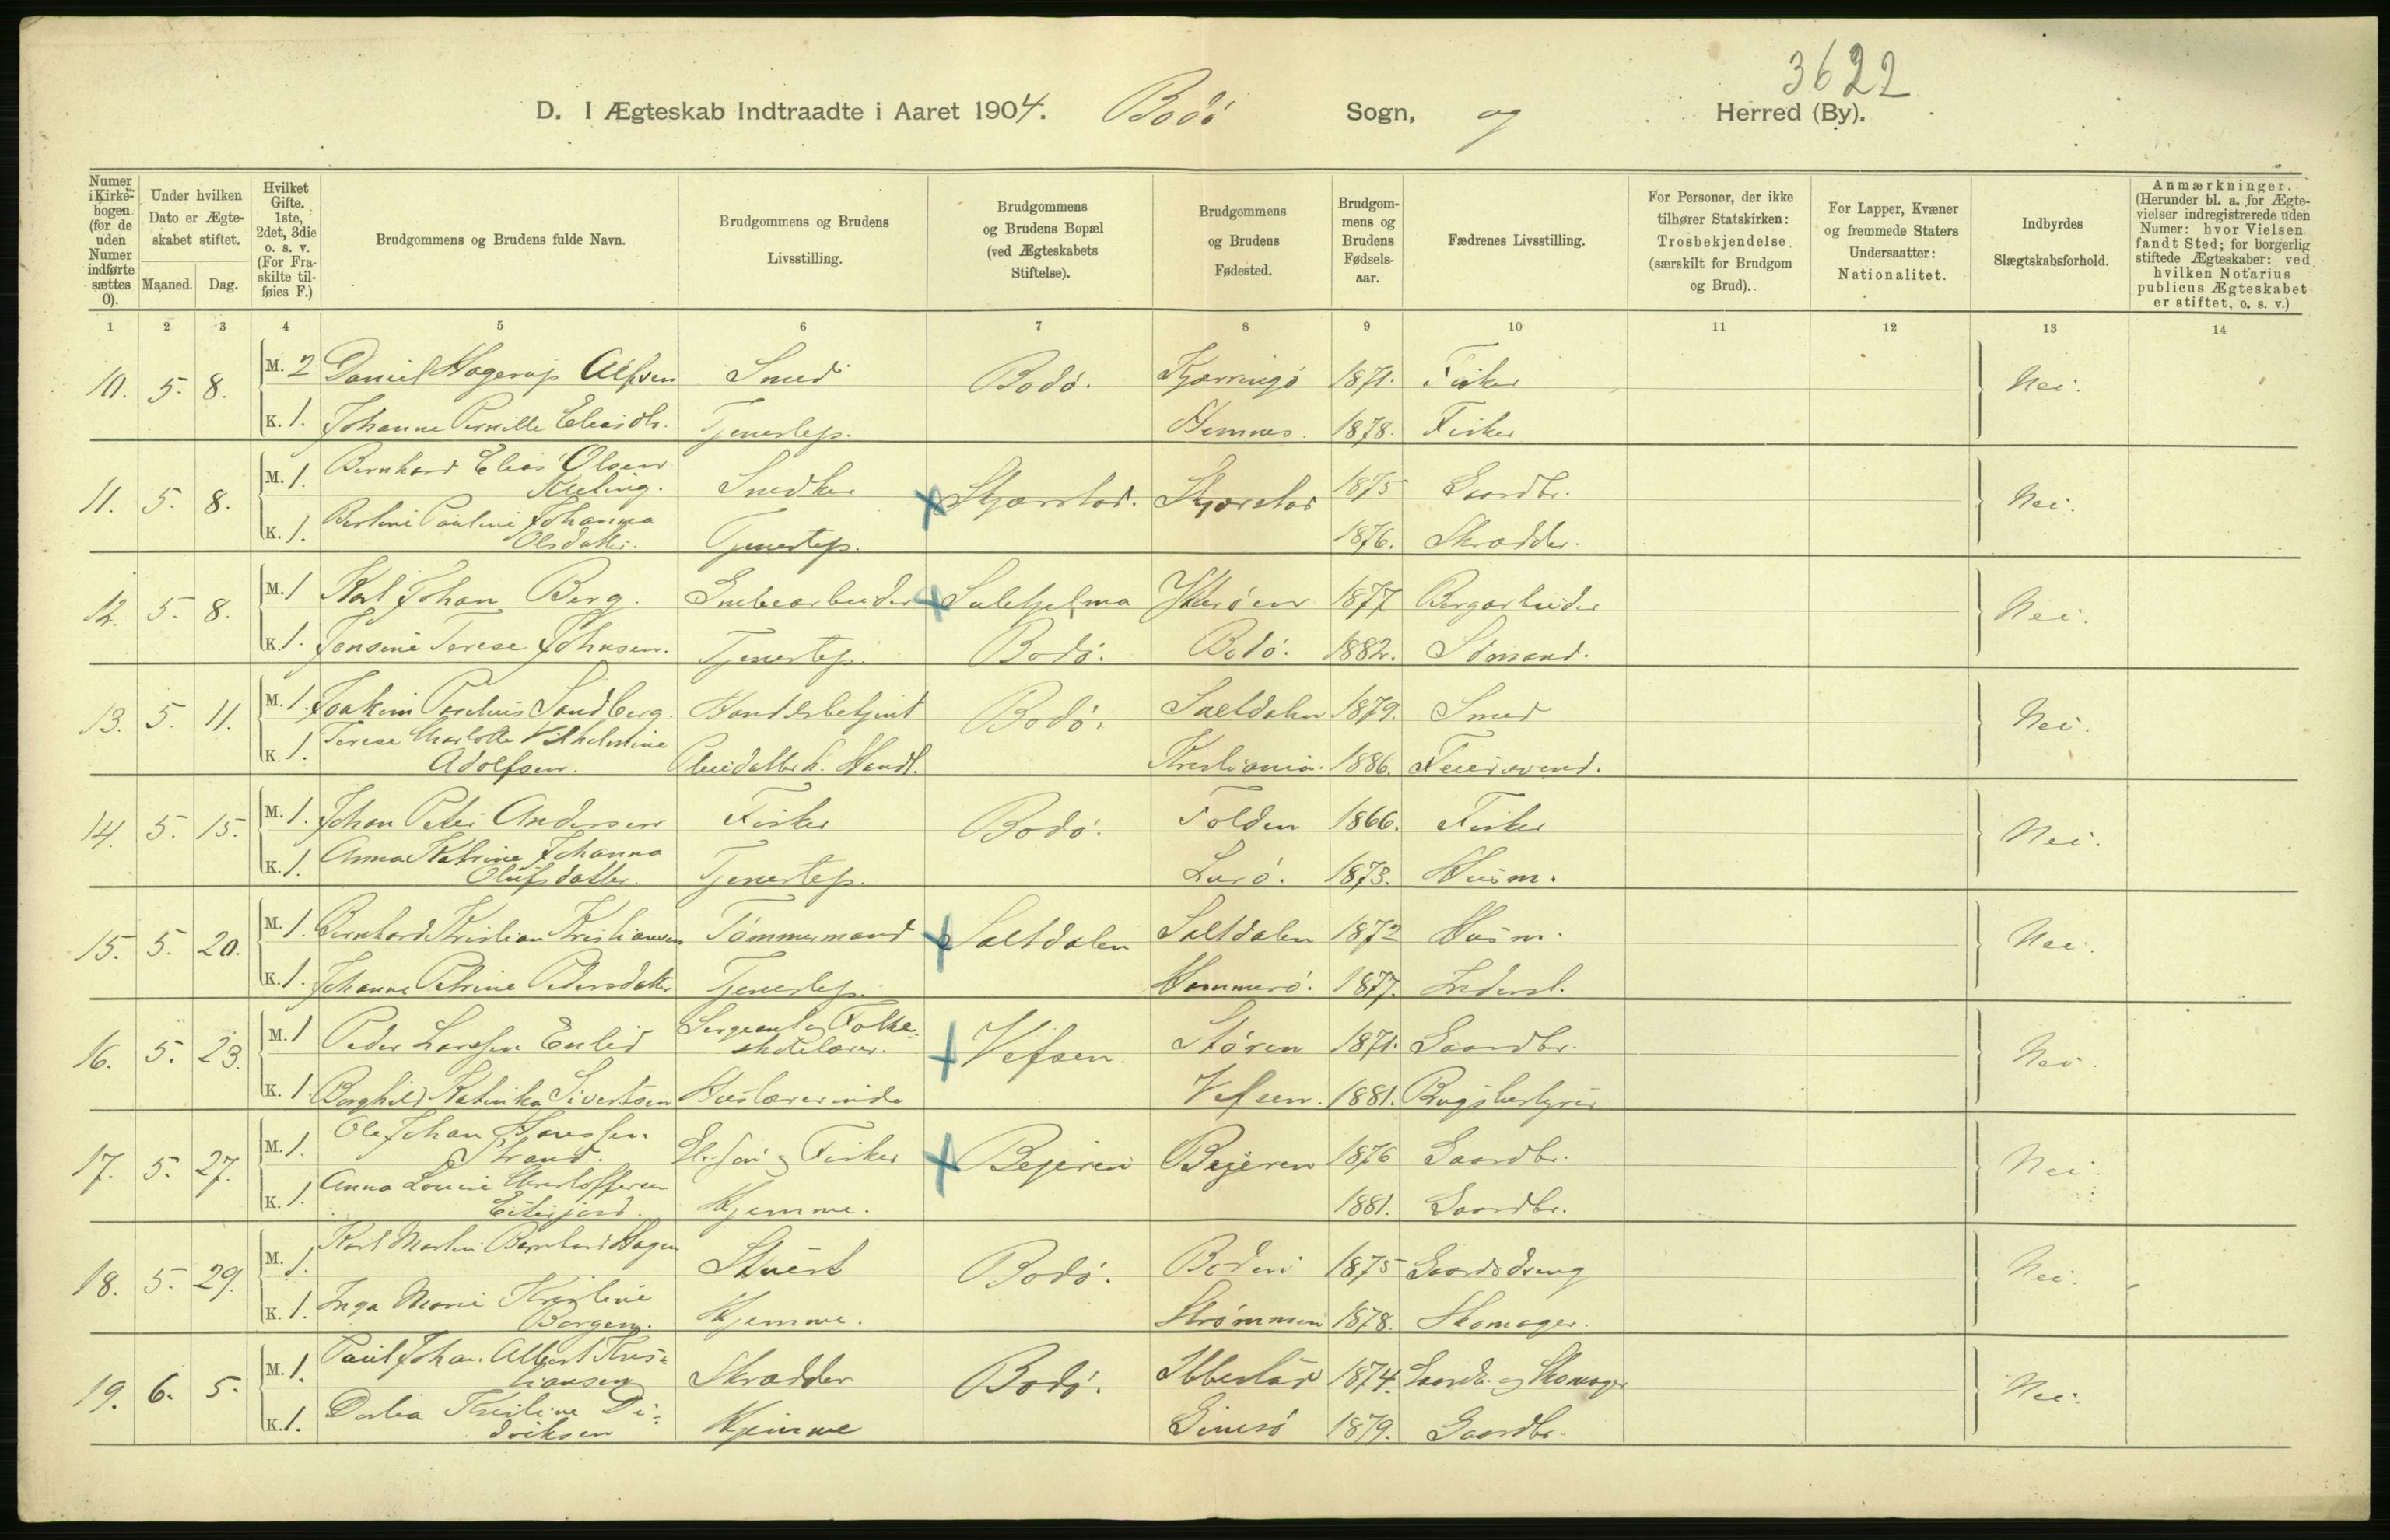 3622
D. I Ægteskab Indtraadte i Aaret 1904. Bodø Sogn, og Herred (By).
Numer i Kirke- bogen (for de uden Numer indførte sættes 0).
Under hvilken Dato er Ægte- skabet stiftet.
Maaned. Dag.
Hvilket Gifte. 1ste, 2det, 3die o. s. v. (For Fra- skilte til- føies F.)
Brudgommens og Brudens fulde Navn.
Brudgommens og Brudens Livsstilling.
Brudgommens og Brudens Bopæl (ved Ægteskabets Stiftelse).
Brudgommens og Brudens Fødested.
Brudgom- mens og Brudens Fødsels- aar.
Fædrenes Livsstilling.
For Personer, der ikke tilhører Statskirken: Trosbekjendelse. (særskilt for Brudgom og Brud).
For Lapper, Kvæner og fremmede Staters Undersaatter: Nationalitet.
Indbyrdes Slægtskabsforhold.
Anmærkninger. (Herunder bl. a. for Ægte- vielser indregistrerede uden Numer: hvor Vielsen fandt Sted; for borgerlig stiftede Ægteskaber: ved hvilken Notarius publicus Ægteskabet er stiftet, o. s. v.)
1 2 3 4 5 6 7 8 9 10 11 12 13 14
10. 5. 8. M. 2 Daniel Hagerup Alfsen Smed Bodø. Kjærringø 1871. Fisker Nei.
K. 1. Johanne Pernille Eliasdtr. Tjenestep. Hemnes. 1878. Fisker
11. 5. 8. M. 1. Bernhard Elias Olsen Snedker Skjærstad. Skjærstad 1875 Gaardbr. Nei.
K. 1. Bertine Pauline Johanna
Olsdatter. Tjenestep. 1876. Skrædder.
12. 5. 8. M. 1 Karl Johan Berg. Grubearbeider Sulitjelma Ytterøen 1877 Bergarbeider Nei.
K. 1. Jensine Terese Johnsen. Tjenestep. Bodø. Bodø. 1882. Sømand.
13. 5. 11. M. 1. Joakim Parelius Sandberg. Handelsbetjent Bodø. Saltdalen 1879. Smed Nei.
K. 1. Terese Charlotte Vilhelmine
Adolfsen. Pleiedatter h. Handl. Kristiania. 1886. Feiersvend.
14. 5. 15. M. 1. Johan Peter Andersen Fisker Bodø. Folden 1866. Fisker Nei.
K. 1. Anna Katrine Johanna
Olufsdatter. Tjenestep. Lurø. 1873. Husm.
15. 5. 20. M. 1. Bernhard Kristian Kristiansen Tømmermand Saltdalen Saltdalen 1872 Husm. Nei.
K. 1. Johanne Petrine Pedersdatter Tjenestep. Hammerø. 1877. Inderst.
16. 5. 23. M. 1 Peder Larssen Enlid Sergeant og Folke-
skolelærer. Vefsen. Støren 1871. Gaardbr. Nei.
K. 1. Borghild Katinka Sivertsen Huslærerinde Vefsen. 1881. Brugsbestyrer
17. 5. 27. M. 1. Ole Johan Hanssen
Strand. Gbr. søn og Fisker Bejeren Bejeren 1876 Gaardbr. Nei.
K. 1. Anna Lovise Kristoffersen
Eiterjord. Hjemme. 1881. Gaardbr.
18. 5. 29. M. 1. Karl Martin Bernhard Hagen Stuert Bodø. Bodin 1875 Gaardsdreng Nei.
K. 1. Inga Marie Kristine
Borgen. Hjemme. Strømmen 1878. Skomager.
19. 6. 5. M. 1. Paul Johan Albert Kris-
tiansen Skrædder Bodø. Ibbestad 1874. Gaardb. og Skomager Nei.
K. 1. Dorthea Kristine Di-
driksen Hjemme Gimsø 1879. Gaardbr.